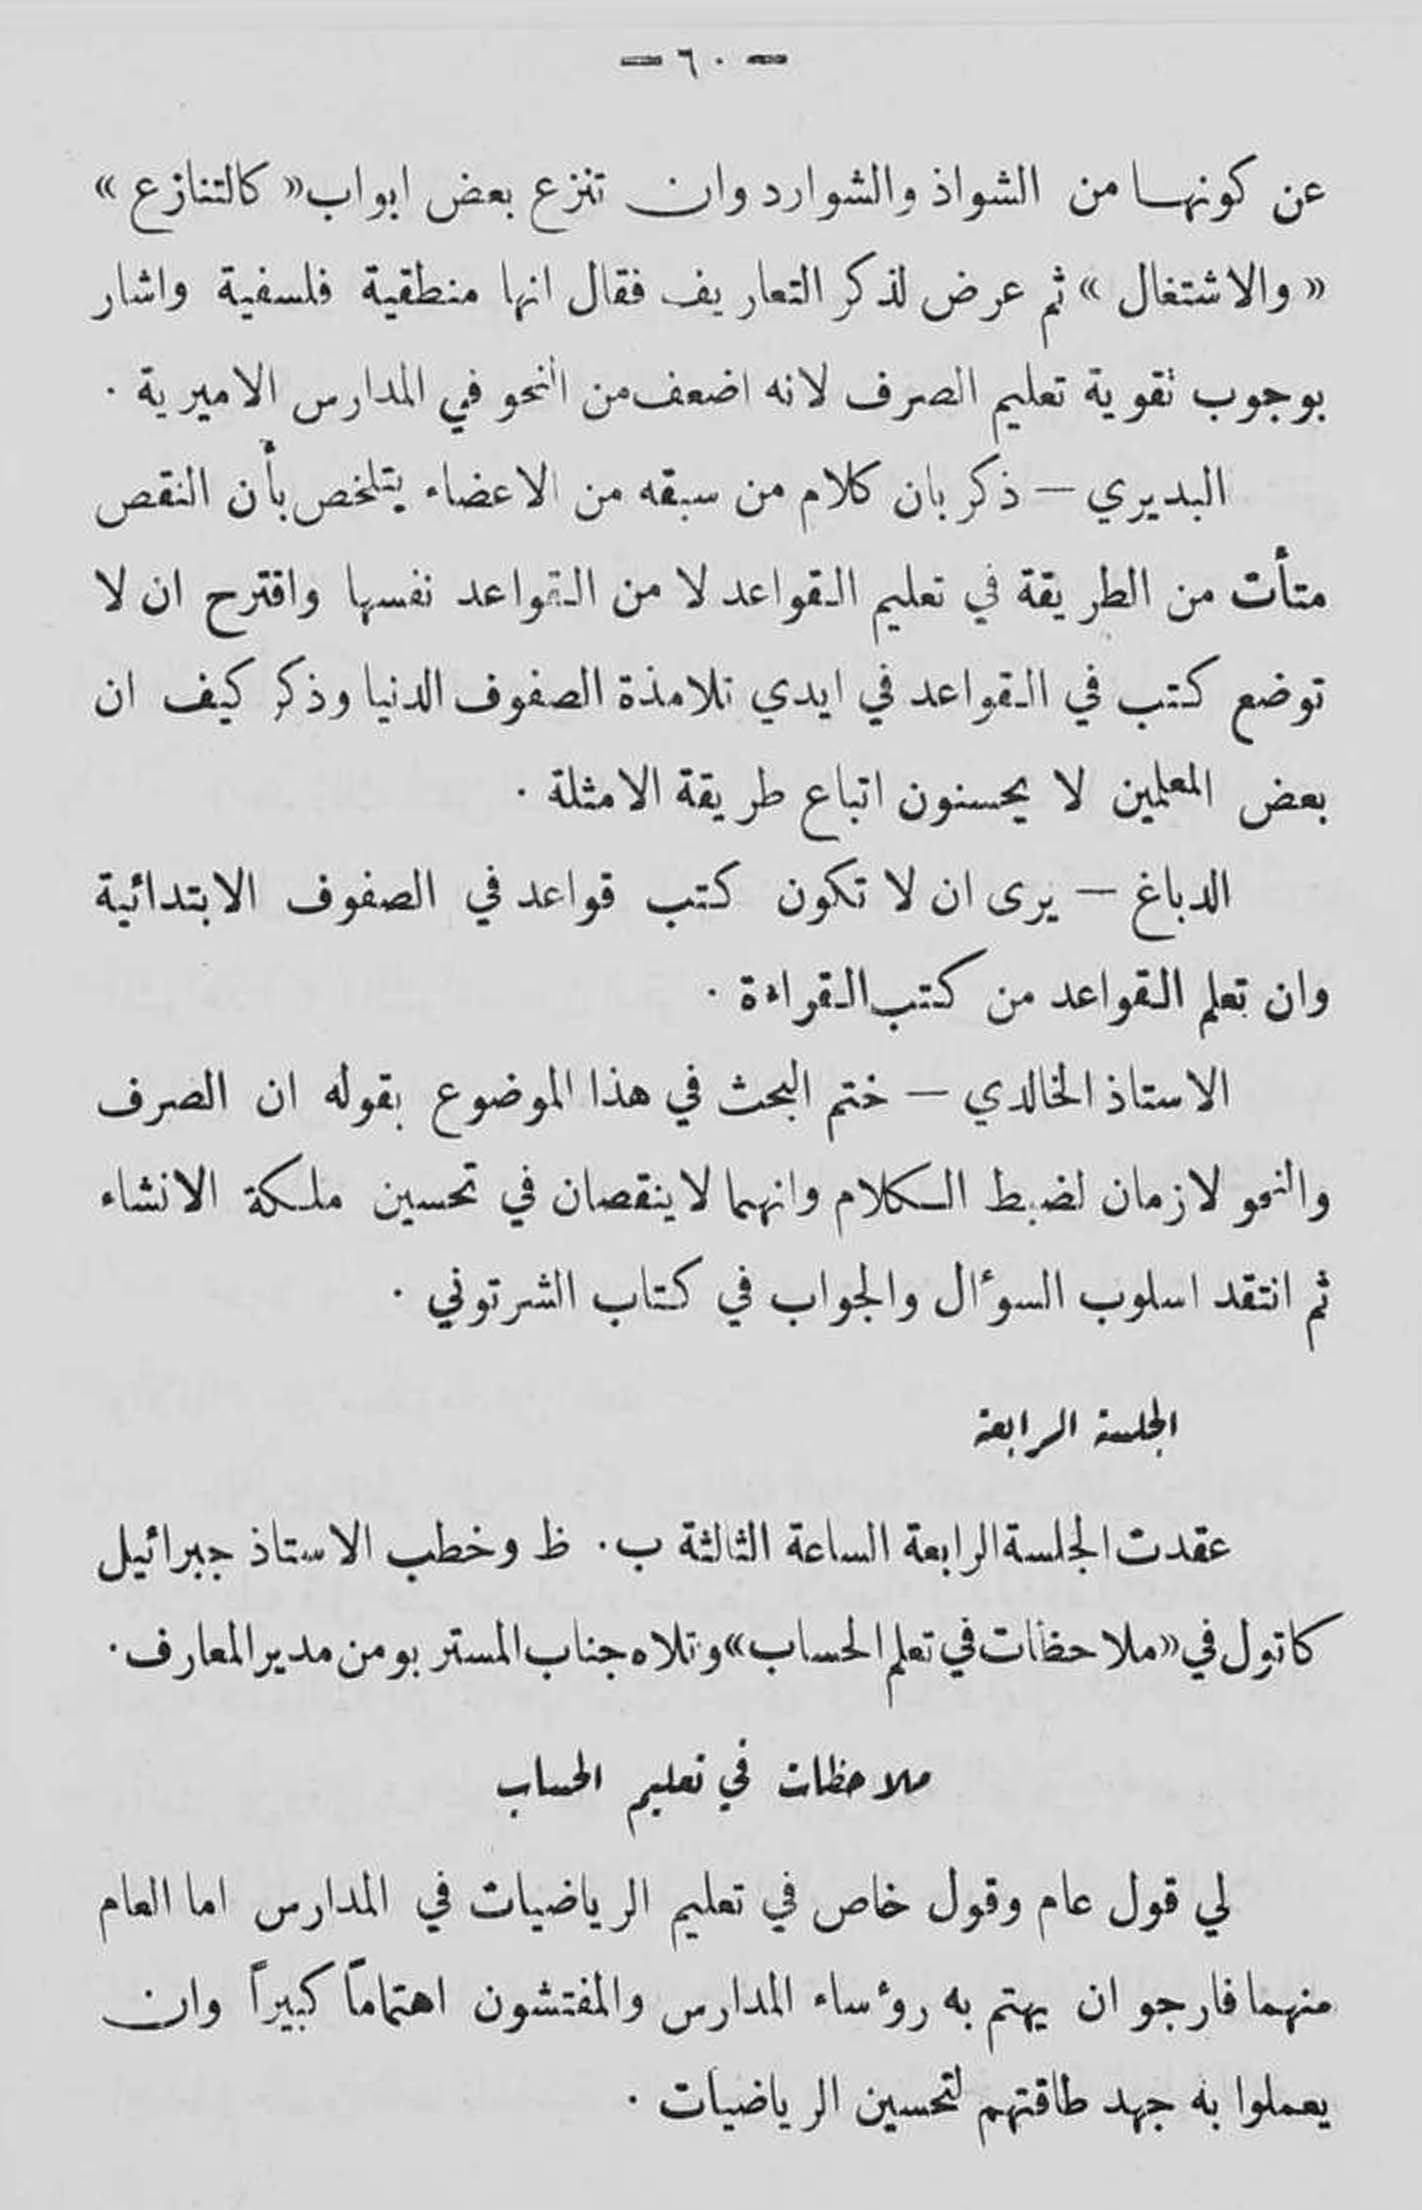 — ٦٠ —
عن كونها من الشواذ والشوارد وان تنزع بعض ابواب « كالتنازع »
« والاشتغال » ثم عرض لذكر التعاريف فقال انها منطقية فلسفية واشار
بوجوب تقوية تعليم الصرف لانه اضعف من النحو في المدارس الاميرية ·
البديري — ذكر بان كلام من سبقه من الاعضاء يتلخص بأن النقص
متأت من الطريقة في تعليم القواعد لا من القواعد نفسها واقترح ان لا
توضع كتب في القواعد في ايدي تلامذة الصفوف الدنيا وذكر كيف ان
بعض المعلمين لا يحسنون اتباع طريقة الامثلة ·
الدباغ — يرى ان لا تكون كتب قواعد في الصفوف الابتدائية
وان تعلم القواعد من كتب القراءة ·
الاستاذ الخالدي — ختم البحث في هذا الموضوع بقوله ان الصرف
والنحو لازمان لضبط الكلام وانهما لا ينقصان في تحسين ملكة الانشاء
ثم انتقد اسلوب السوءال والجواب في كتاب الشرتوني ·
الجلسة الرابعة
عقدت الجلسة الرابعة الساعة الثالثة ب · ظ وخطب الاستاذ جبرائيل
كاتول في «ملاحظات في تعلم الحساب» وتلاه جناب المستر بومن مدير المعارف ·
ملاحظات في تعليم الحساب
لي قول عام وقول خاص في تعليم الرياضيات في المدارس اما العام
منهما فارجو ان يهتم به روءساء المدارس والمفتشون اهتماماً كبيراً وان
يعملوا به جهد طاقتهم لتحسين الرياضيات ·